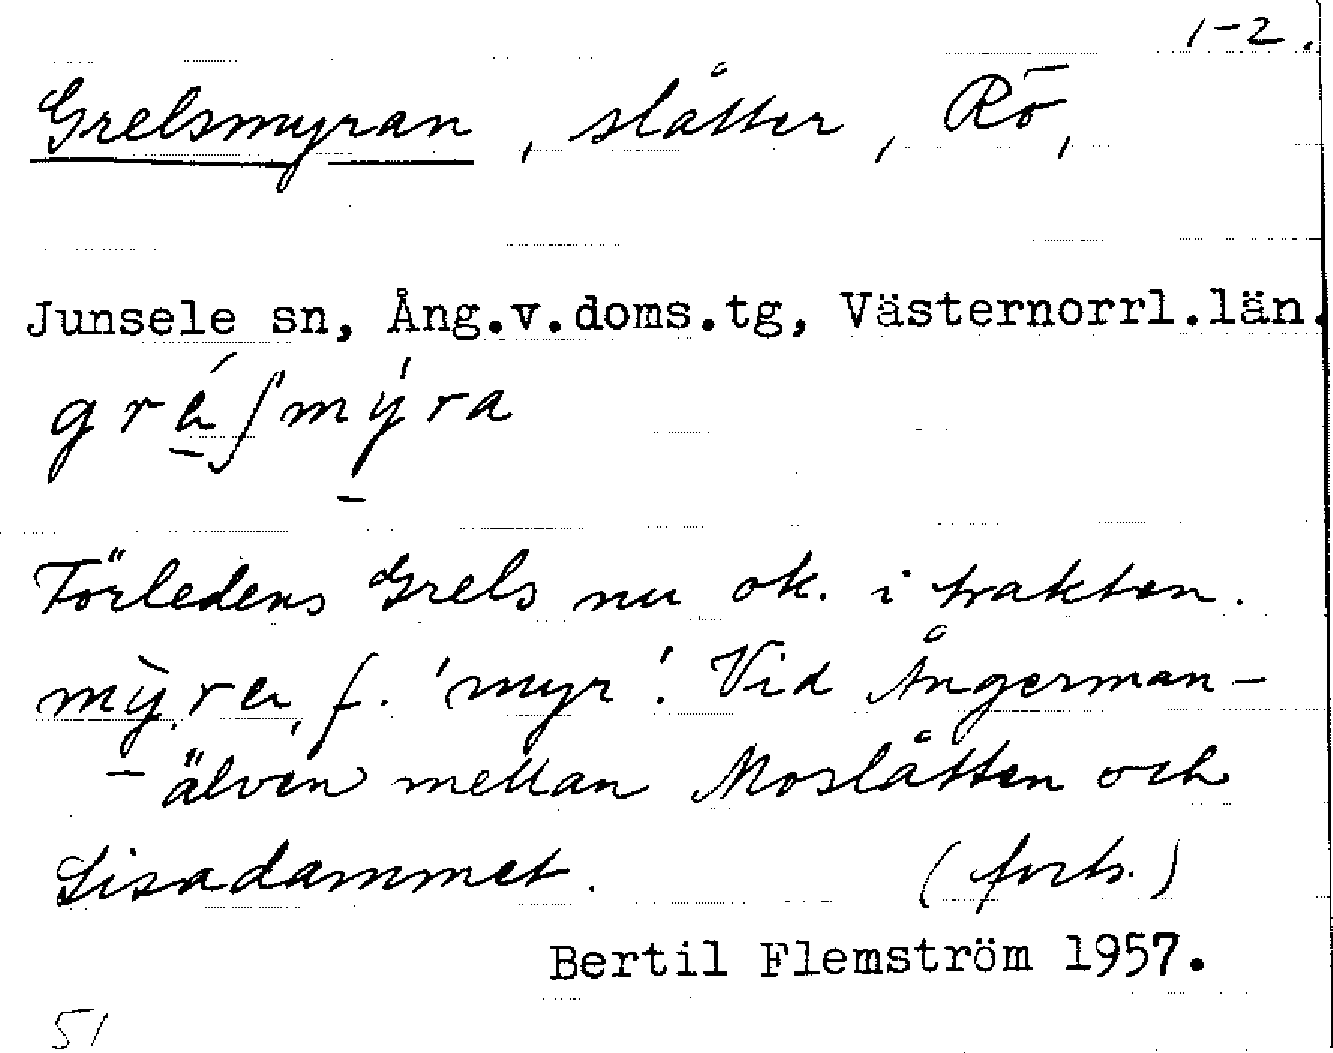 1-2.
Grelsmyran, slåtter, Rö,
Junsele sn, Ång.v.doms.tg, Västernorrl.län.
Förledens Grels nu ok. i trakten.
f. 'myr'. Vid Ångerman-
älven mellan Moslåtten och
Lisadammet. (forts.)
Bertil Flemström 1957.
51